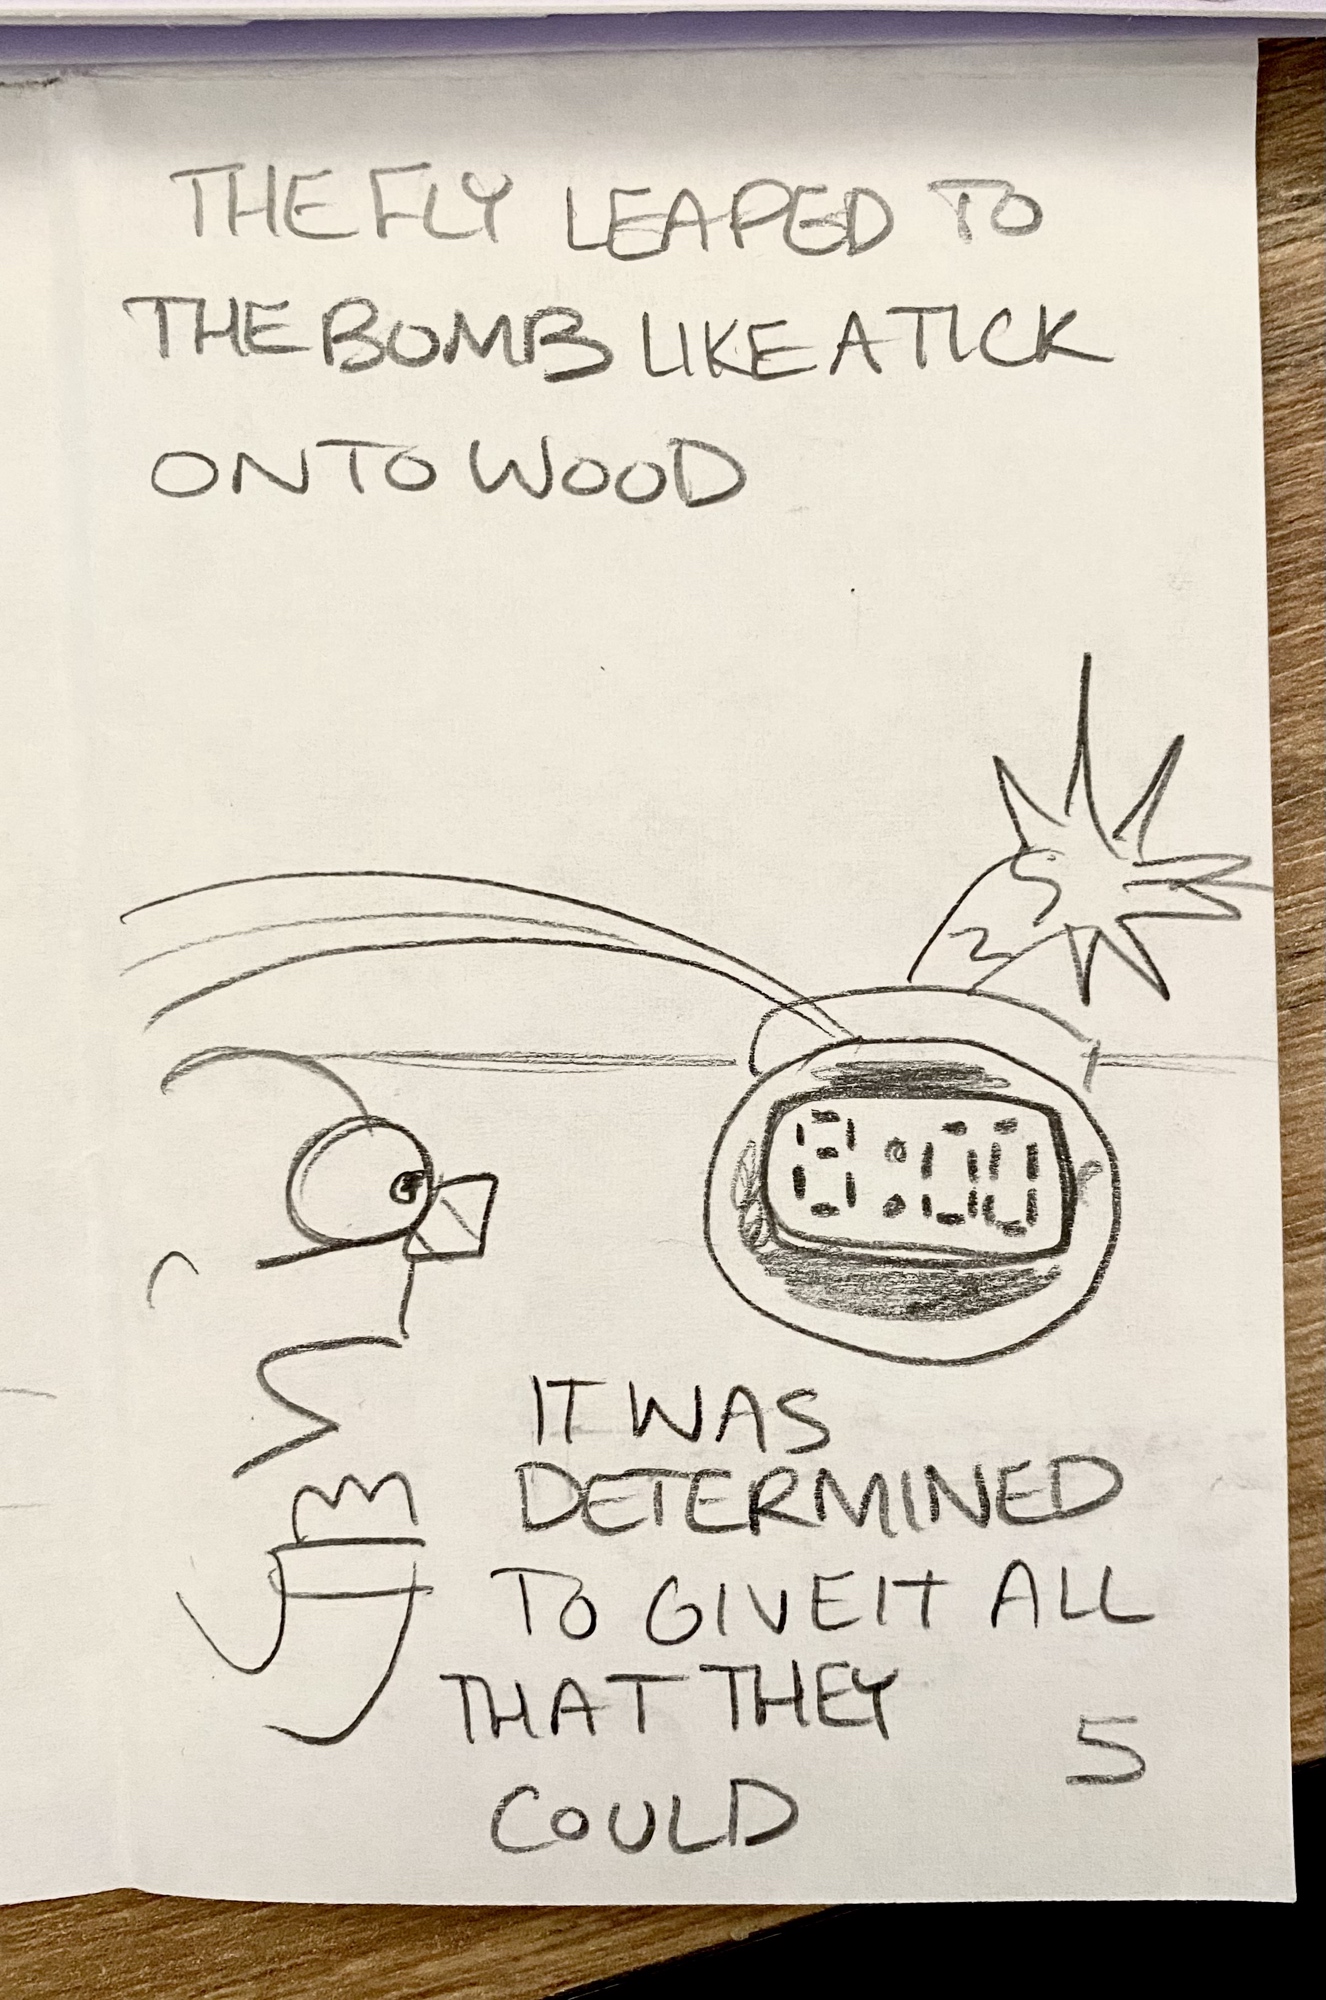 THE FLY LEAPED TO
THE BOMB LIKE A TICK
ONTO WOOD
8:00
IT WAS
DETERMINED
TO GIVE IT ALL
THAT THEY
COULD
5